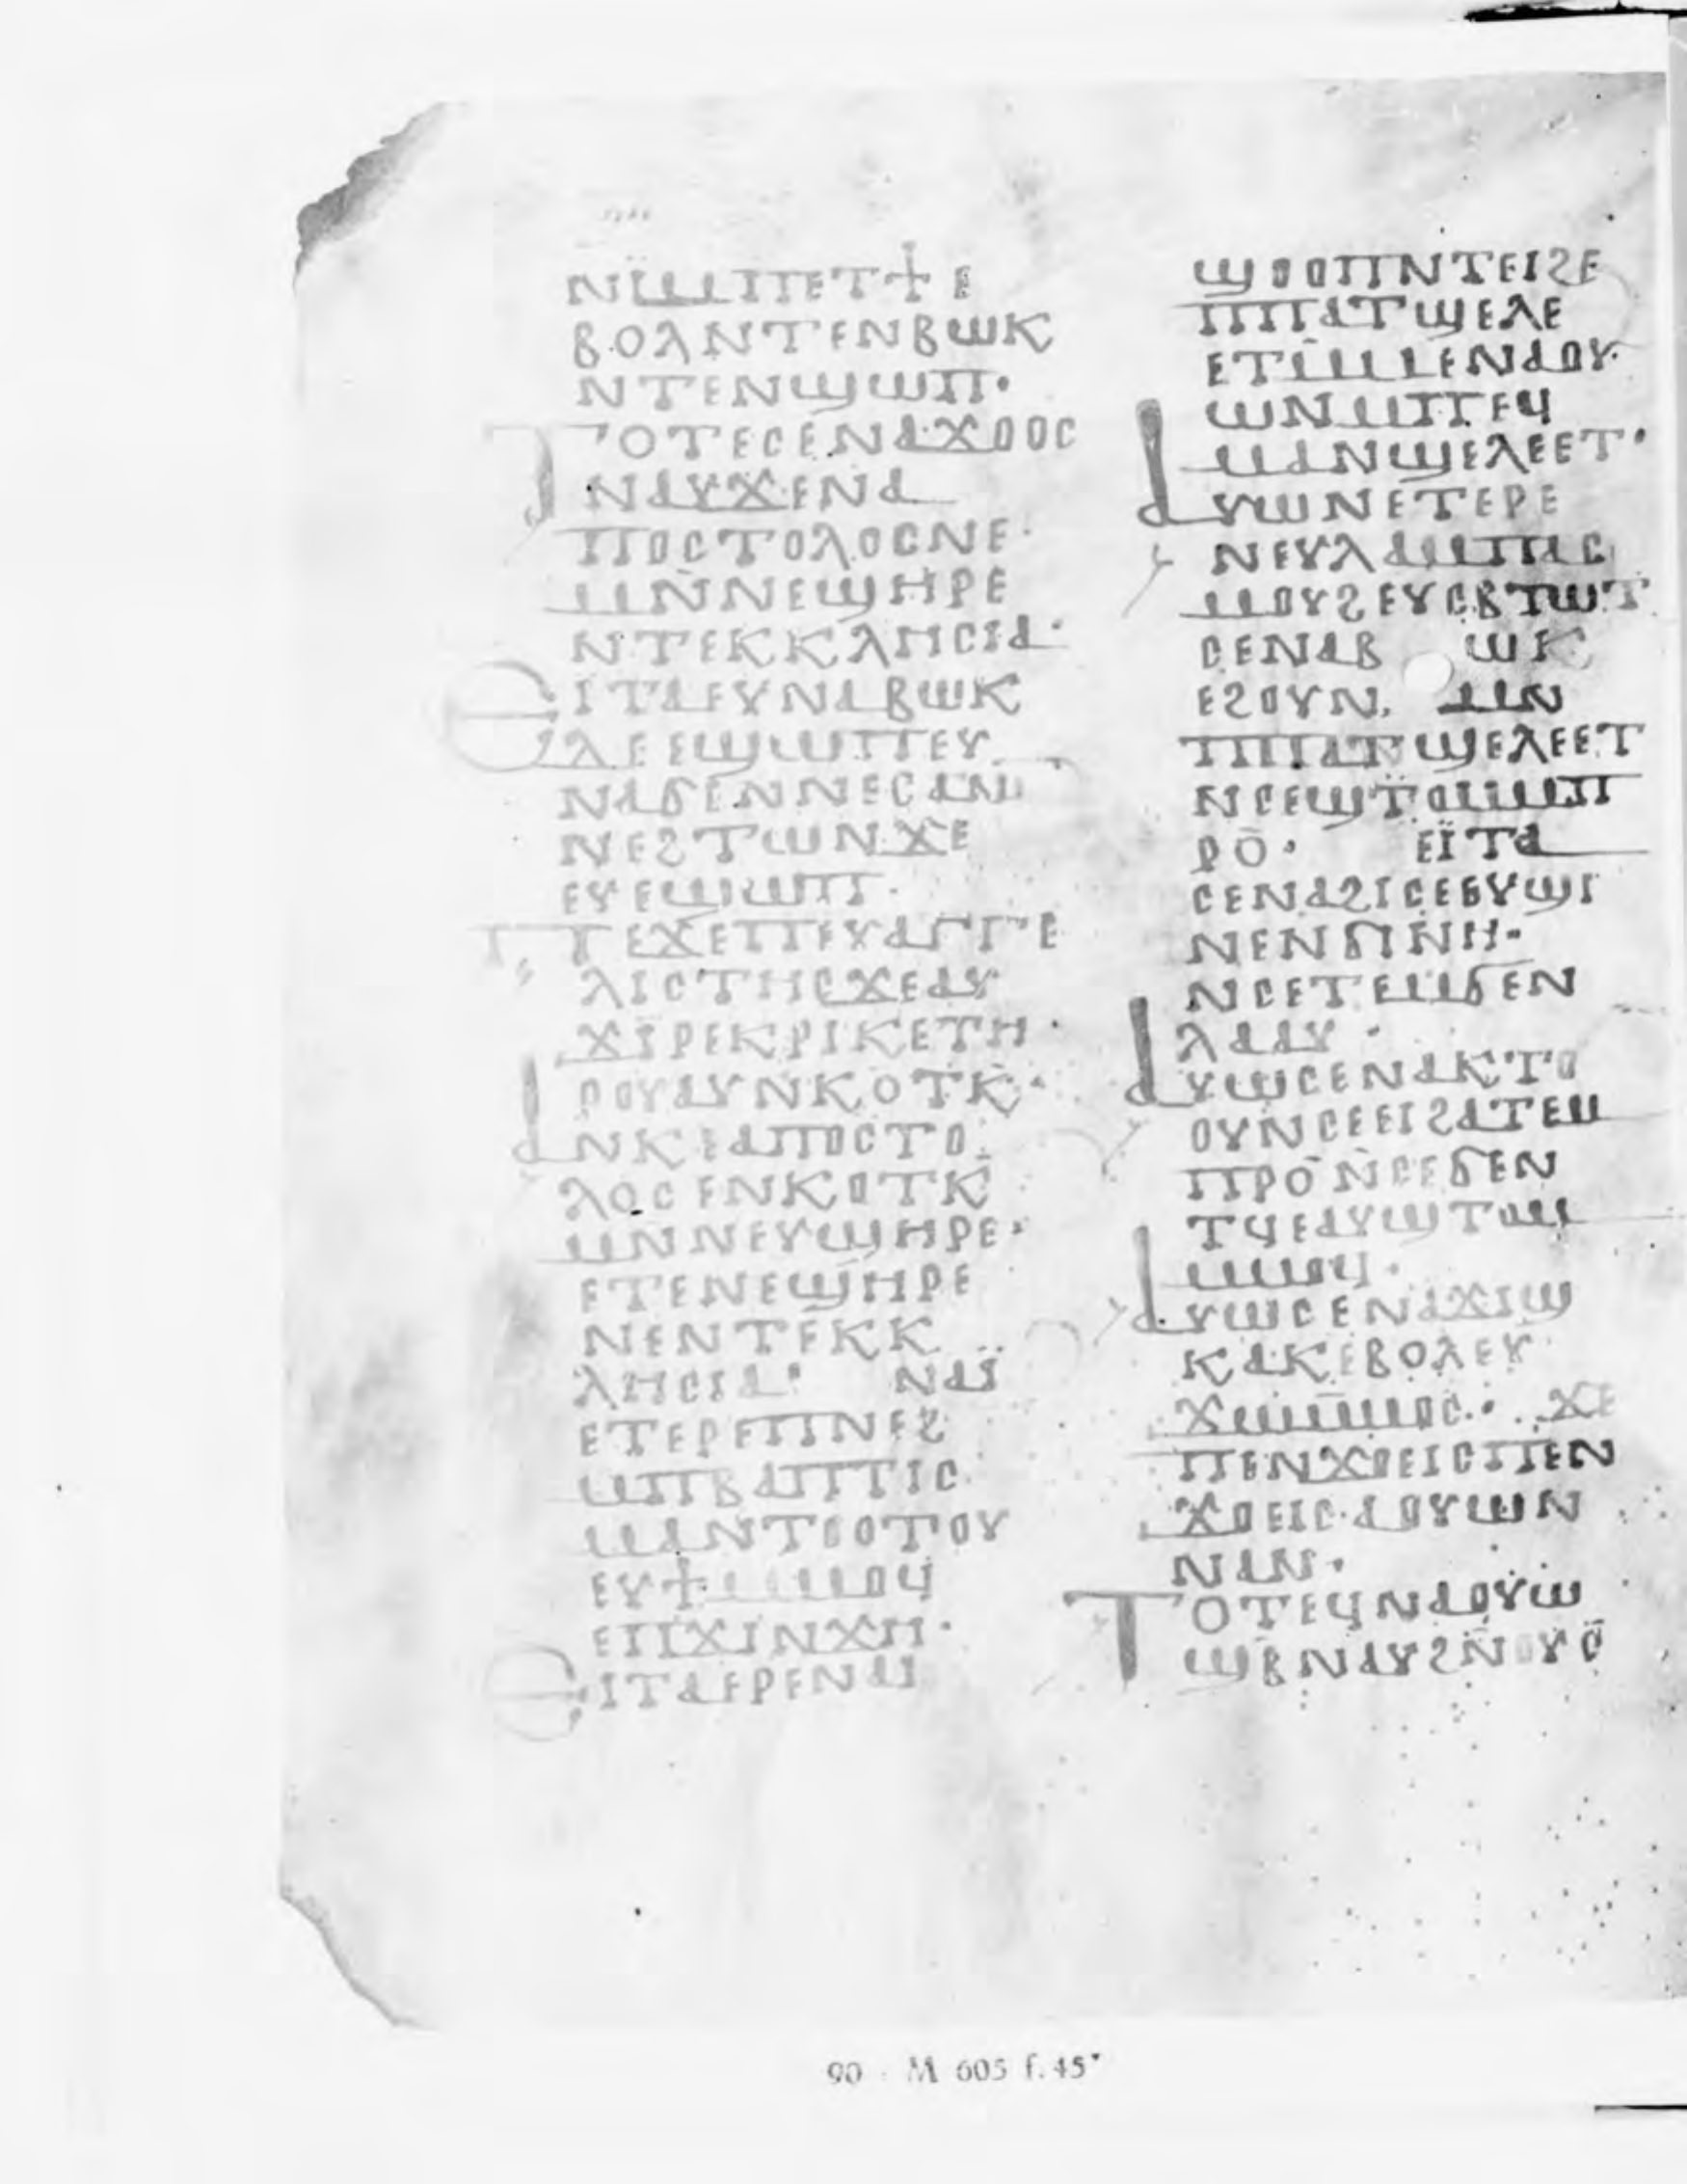 ⲚⲒⲘⲠⲈⲦϮⲈ
ⲂⲞⲗⲚⲦⲈⲚⲂⲰⲔ
ⲚⲦⲈⲚϢⲰⲠ·
ⲦⲞⲦⲈⲤⲈⲚⲀϪⲞⲞⲤ
ⲚⲀⲨϪⲈⲚⲀ
ⲠⲞⲤⲦⲞⲖⲞⲤⲚⲈ·
ⲘⲚ̄ⲚⲈϢⲎⲢⲈ
ⲚⲦⲈⲔⲔⲖⲎⲤⲒⲀ·
ⲈⲒⲦⲀⲈⲨⲚⲀⲂⲰⲔ
ⲈϢⲰⲠⲈⲨ
ⲚⲀϬⲈⲚⲚⲈⲤⲀⲚ
ⲚⲈϨⲦⲰⲚϪⲈ
ⲈⲨⲈϢⲰⲠ·
ⲠⲈϪⲈⲠⲈⲨⲀⲄⲄⲈ
ⲖⲒⲤⲦⲎⲤϪⲈⲀⲨ
ϪⲒⲢⲈⲔⲢⲒⲔⲈⲦⲎ·
ⲢⲞⲨⲀⲨⲚⲔⲞⲦⲔ·
ⲀⲚⲔⲈⲀⲠⲞⲤⲦⲞ
ⲖⲞⲤⲈⲚⲔⲞⲦⲔ
ⲘⲚⲚⲈⲨϢⲎⲢⲈ·
ⲈⲦⲈⲚⲈϢⲎⲢⲈ
ⲚⲈⲚⲦⲈⲔⲔ
ⲖⲎⲤⲒⲀ· ⲚⲀⲒ̈
ⲈⲦⲈⲢⲈⲠⲚⲈϨ
ⲘⲠⲂⲀⲠⲦⲒⲤ
ⲘⲀⲚⲦⲞⲞⲦⲞⲨ
ⲈⲨϮⲘⲘⲞϤ
ⲈⲠϪⲒⲚϪⲎ·
ⲈⲒⲦⲀⲈⲢⲈⲚⲀⲒ
ϢⲞⲞⲠⲚⲦⲈⲒϨⲈ
ⲠⲠⲀⲦϢⲈⲖⲈ
ⲈⲦⲘ̄ⲘⲈⲚⲀⲞⲨ·
ⲰⲚⲘⲠⲈϤ
ⲘⲀⲚϢⲈⲖⲈⲈⲦ·
ⲀⲨⲰⲚⲈⲦⲈⲢⲈ
ⲚⲈⲨⲖⲀⲘⲠⲀⲤ
ⲘⲞⲨϨⲈⲨⲤⲂⲦⲰⲦ
ⲤⲈⲚⲀⲂⲰⲔ
ⲈϨⲞⲨⲚ. ⲘⲚ
ⲠⲠⲀⲦϢⲈⲖⲈⲈⲦ
ⲚⲤⲈϢⲦⲞⲘⲘⲠ
ⲢⲞ̄· ⲈⲒ̈ⲦⲀ
ⲤⲈⲚⲀϨⲒⲤⲈⲈⲨϢⲒ
ⲚⲈⲚϬⲒⲚⲎ·
ⲚⲤⲈⲦⲈⲘϬⲈⲚ
ⲖⲀⲀⲨ·
ⲀⲨⲰⲤⲈⲚⲀⲔⲦⲞ
ⲞⲨⲚⲤⲈⲈⲒϨⲀⲦⲈⲘ
ⲠⲢⲞ̄Ⲛ̄ⲤⲈϬⲈⲚ
ⲦϤⲈⲀⲨϢⲦⲀⲘ
ⲘⲘⲞϤ·
ⲀⲨⲰⲤⲈⲚⲀϪⲒϢ
ⲔⲀⲔⲈⲂⲞⲖⲈⲨ
ϪⲰⲘⲘⲞⲤ·ϪⲈ
ⲠⲈⲚϪⲞⲈⲒⲤⲠⲈⲚ
ϪⲞⲈⲒⲤ·ⲀⲞⲨⲰⲚ
ⲚⲀⲚ·
ⲦⲞⲦⲈϤⲚⲀⲞⲨⲰ
ϢⲂⲚⲀⲨϨⲚ̄ⲞⲨⲞ̈
90 · M 605 f. 45ᵛ